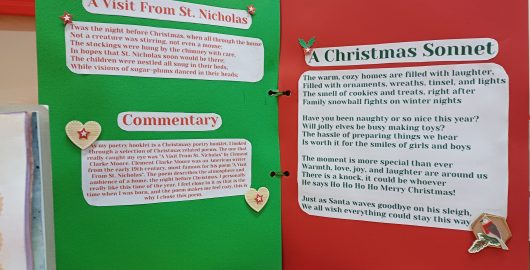 A Visit From St. Nicholas
'Twas the night before Christmas, when all through the house
Not a creature was stirring, not even a mouse;
The stockings were hung by the chimney with care,
In hopes that St. Nicholas soon would be there;
The children were nestled all snug in their beds,
While visions of sugar-plums danced in their heads;
Commentary
As my poetry booklet is a Christmas poetry booklet, I looked
through a selection of Christmas related poems. The one that
really caught my eye was 'A Visit From St. Nicholas' by Clement
Clarke Moore. Clement Clarke Moore was an American writer
from the early 19th century, most famous for his poem 'A Visit
From St. Nicholas'. The poem describes the atmosphere and
ambience of a home, the night before Christmas. I personally
really like this time of the year, I feel close to it as that is the
time when I was born, and the poem made me feel cosy, this is
why I chose this poem.
A Christmas Sonnet
The warm, cozy houses are filled with laughter,
Filled with ornaments, wreaths, tinsel, and lights
The smell of cookies and treats, right after
Family snowball fights on winter nights
Have you been naughty or so nice this year?
Will jolly elves be busy making toys?
The hassle of preparing things we hear
Is worth it for the smiles of girls and boys
The moment is more special than ever
Warmth, love, joy, and laughter are around us
There is a knock, it could be whoever
He says Ho Ho Ho Ho Merry Christmas!
Just as Santa waves goodbye on his sleigh,
We all wish everything could stay this way